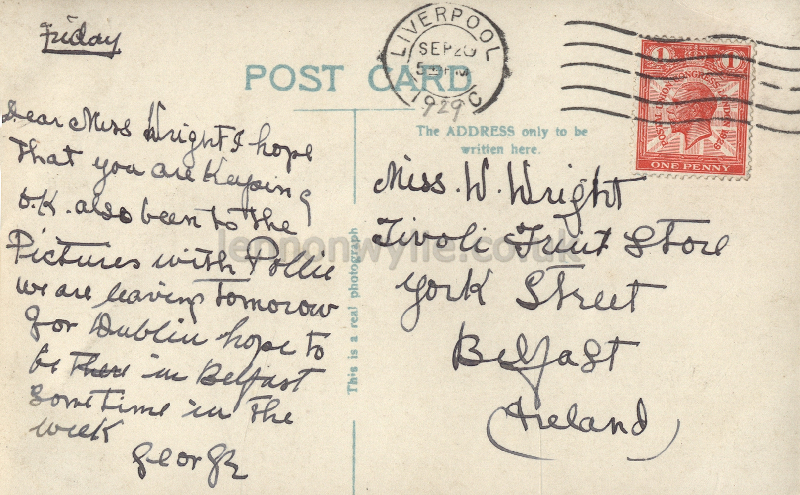 Friday
LIVERPOOL
SEP 20
1929 C
POST CARD
1 1
ONE PENNY
The ADDRESS only to be
written here.
Dear Miss Wright I hope
that you are Keeping
O.K. also been to the
Pictures with Pollie
we are leaving Tomorow
for Dublin hope to
be There in Belfast
Sometime in The
week
George
This is a real photograph
Miss. W. Wright
Tivoli Fruit Store
York Street
Belfast
(Ireland)
lennonwylie.co.uk